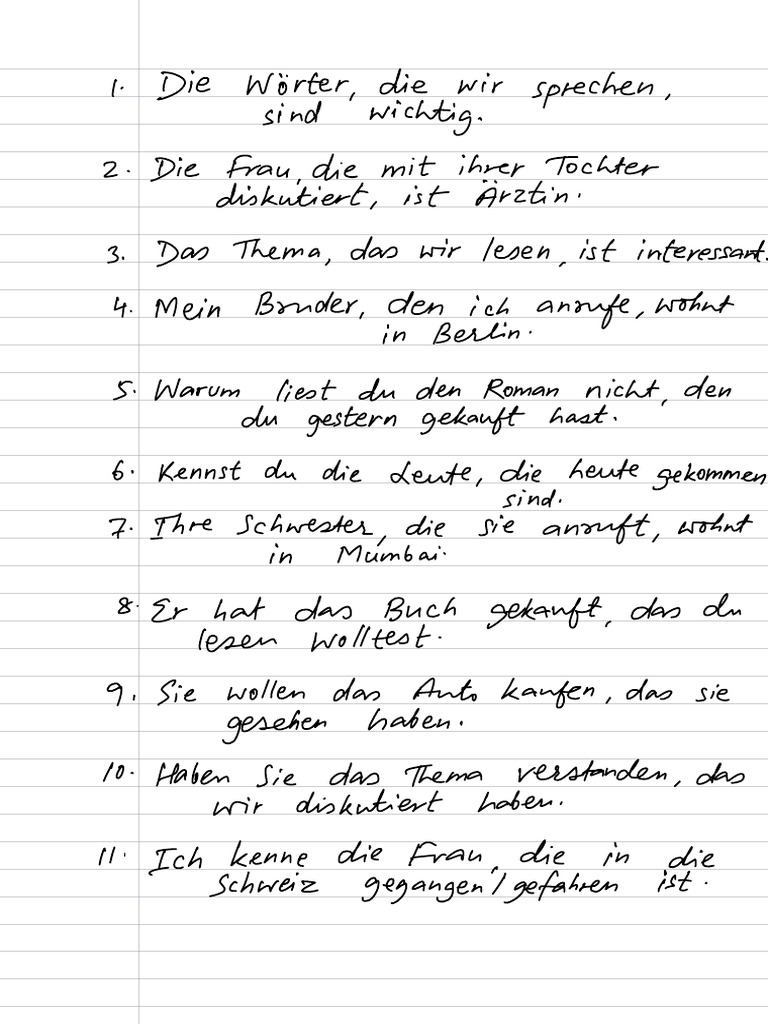 1. Die Wörter, die wir sprechen,
sind wichtig.
2. Die Frau, die mit ihrer Tochter
diskutiert, ist Ärztin.
3. Das Thema, das wir lesen, ist interessant.
4. Mein Bruder, den ich anrufe, wohnt
in Berlin.
5. Warum liest du den Roman nicht, den
du gestern gekauft hast.
6. Kennst du die Leute, die heute gekommen
sind.
7. Ihre Schwester, die sie anruft, wohnt
in Mumbai.
8. Er hat das Buch gekauft, das du
lesen wolltest.
9. Sie wollen das Auto kaufen, das sie
gesehen haben.
10. Haben Sie das Thema verstanden, das
wir diskutiert haben.
11. Ich kenne die Frau, die in die
Schweiz gegangen/gefahren ist.